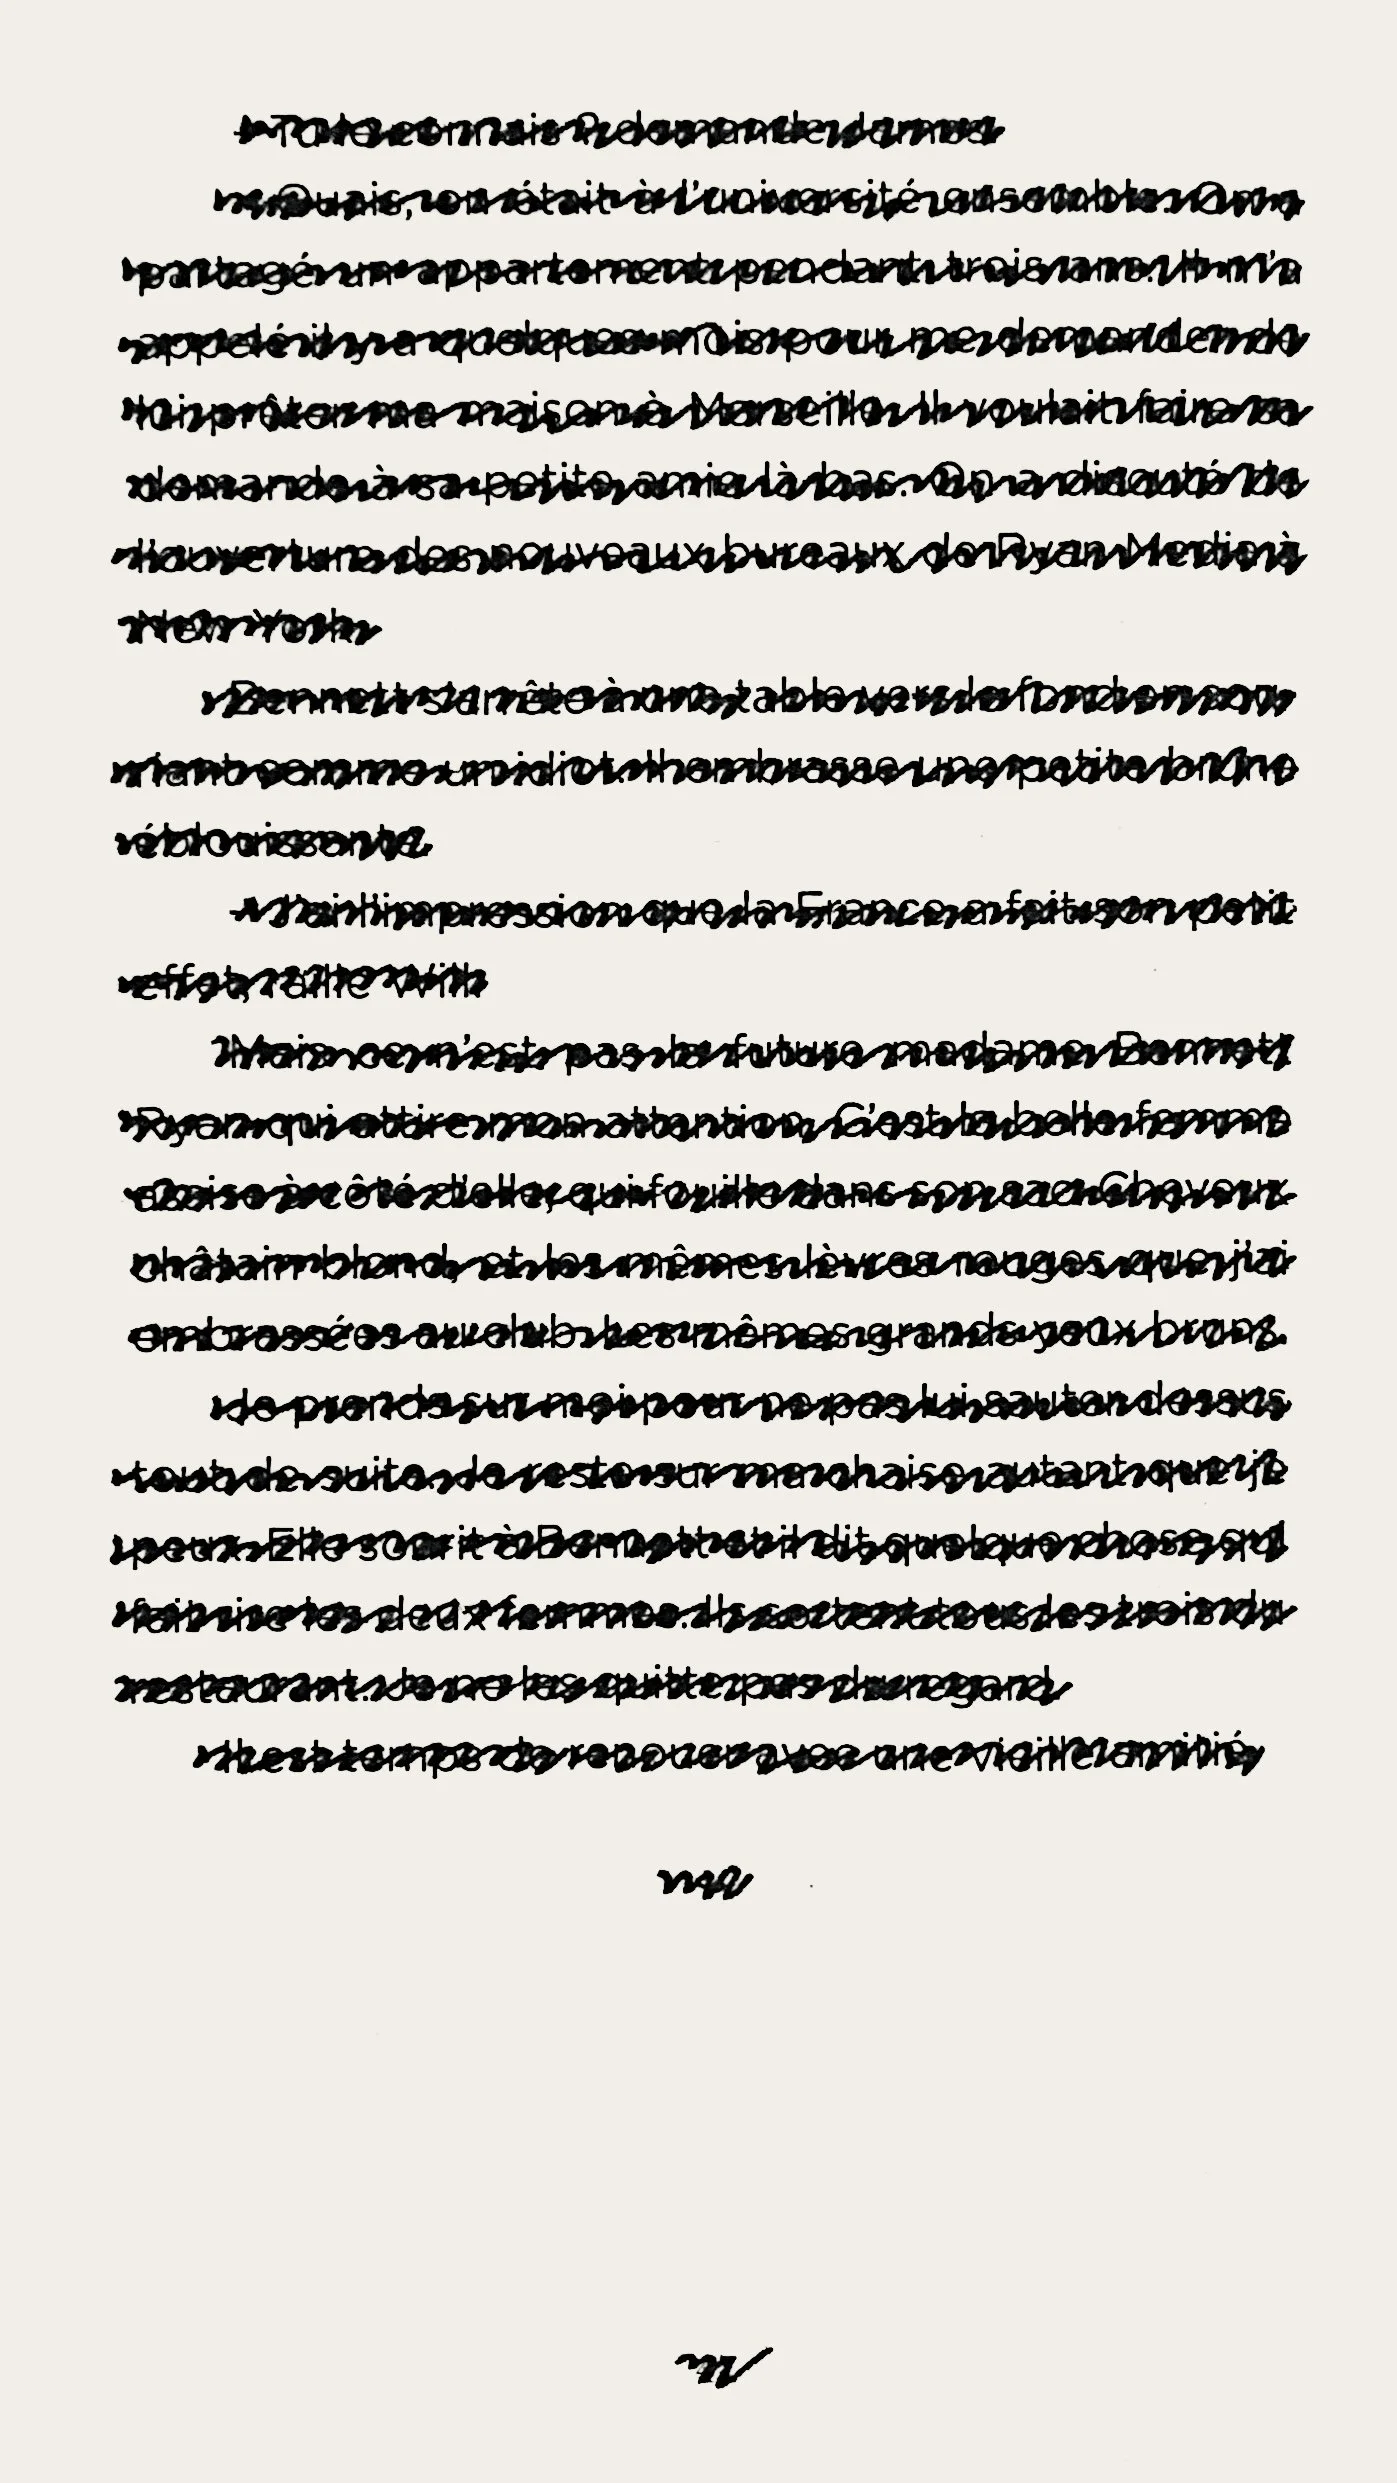 – Tu le connais ? demande James.
– Ouais, on était à l'université ensemble. On a
partagé un appartement pendant trois ans. Il m'a
appelé il y a quelques mois pour me demander de
lui prêter ma maison à Marseille. Il voulait faire sa
demande à sa petite amie là-bas. On a discuté de
l'ouverture des nouveaux bureaux de Ryan Media à
New York.
Bennett s'arrête à une table vers le fond en sou-
riant comme un idiot. Il embrasse une petite brune
éblouissante.
– J'ai l'impression que la France a fait son petit
effet, raille Will.
Mais ce n'est pas la future madame Bennett
Ryan qui attire mon attention. C'est la belle femme
assise à côté d'elle, qui fouille dans son sac. Cheveux
châtain blond, et les mêmes lèvres rouges que j'ai
embrassées au club. Les mêmes grands yeux bruns.
Je prends sur moi pour ne pas lui sauter dessus
tout de suite. Je reste sur ma chaise autant que je
peux. Elle sourit à Bennett et il dit quelque chose qui
fait rire les deux femmes. Ils sortent tous les trois du
restaurant. Je ne les quitte pas du regard.
Il est temps de renouer avec une vieille amitié.